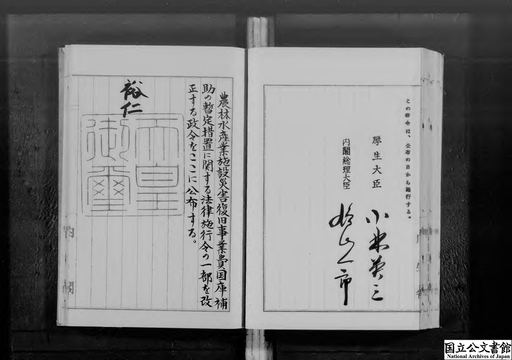 この政令は、公布の日から施行する。
厚生大臣 小林英三
内閣総理大臣 鳩山一郎
農林水産業施設災害復旧事業費国庫補
助の暫定措置に関する法律施行令の一部を改
正する政令をここに公布する。
裕仁
天皇
御璽
内閣
国立公文書館
National Archives of Japan